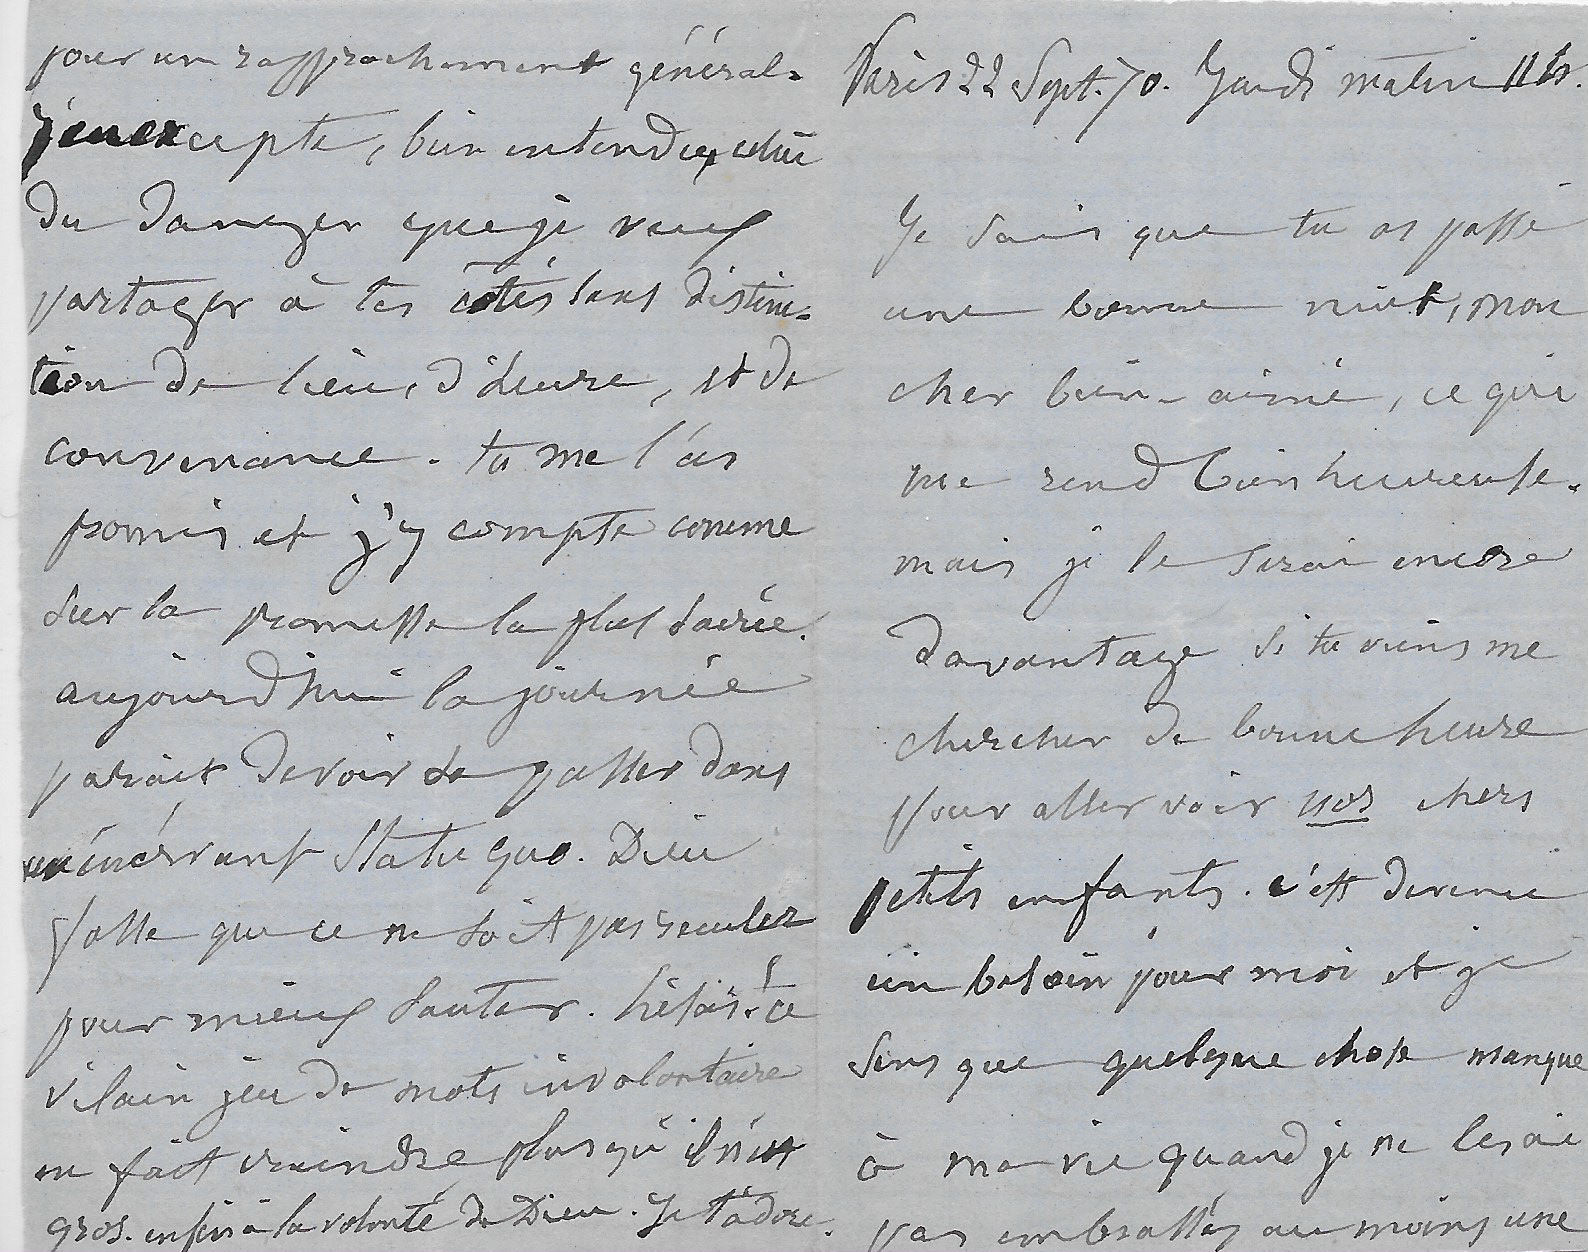 pour un rapprochement général.
J'en excepte, bien entendu, celui
du danger que je veux
partager à tes côtés sans distinc-
tion de lieu, d'heure, et de
convenance. tu me l'as
promis et j'y compte comme
sur la promesse la plus sacrée.
aujourd'hui la journée
paraît devoir se passer dans
un énervant statu quo. Dieu
fasse que ce ne soit pas reculer
pour mieux sauter. hélas ! ce
vilain jeu de mots involontaire
en fait craindre plus qu'il n'est
gros. enfin à la volonté de Dieu. Je t'adore.
Paris 22 Sept. 70. Jeudi matin 11h.
Je sais que tu as passé
une bonne nuit, mon
cher bien-aimé, ce qui
me rend bien heureuse.
mais je le serai encore
davantage si tu viens me
chercher de bonne heure
pour aller voir nos chers
petits enfants. c'est devenu
un besoin pour moi et je
sens que quelque chose manque
à ma vie quand je ne les ai
pas embrassés au moins une